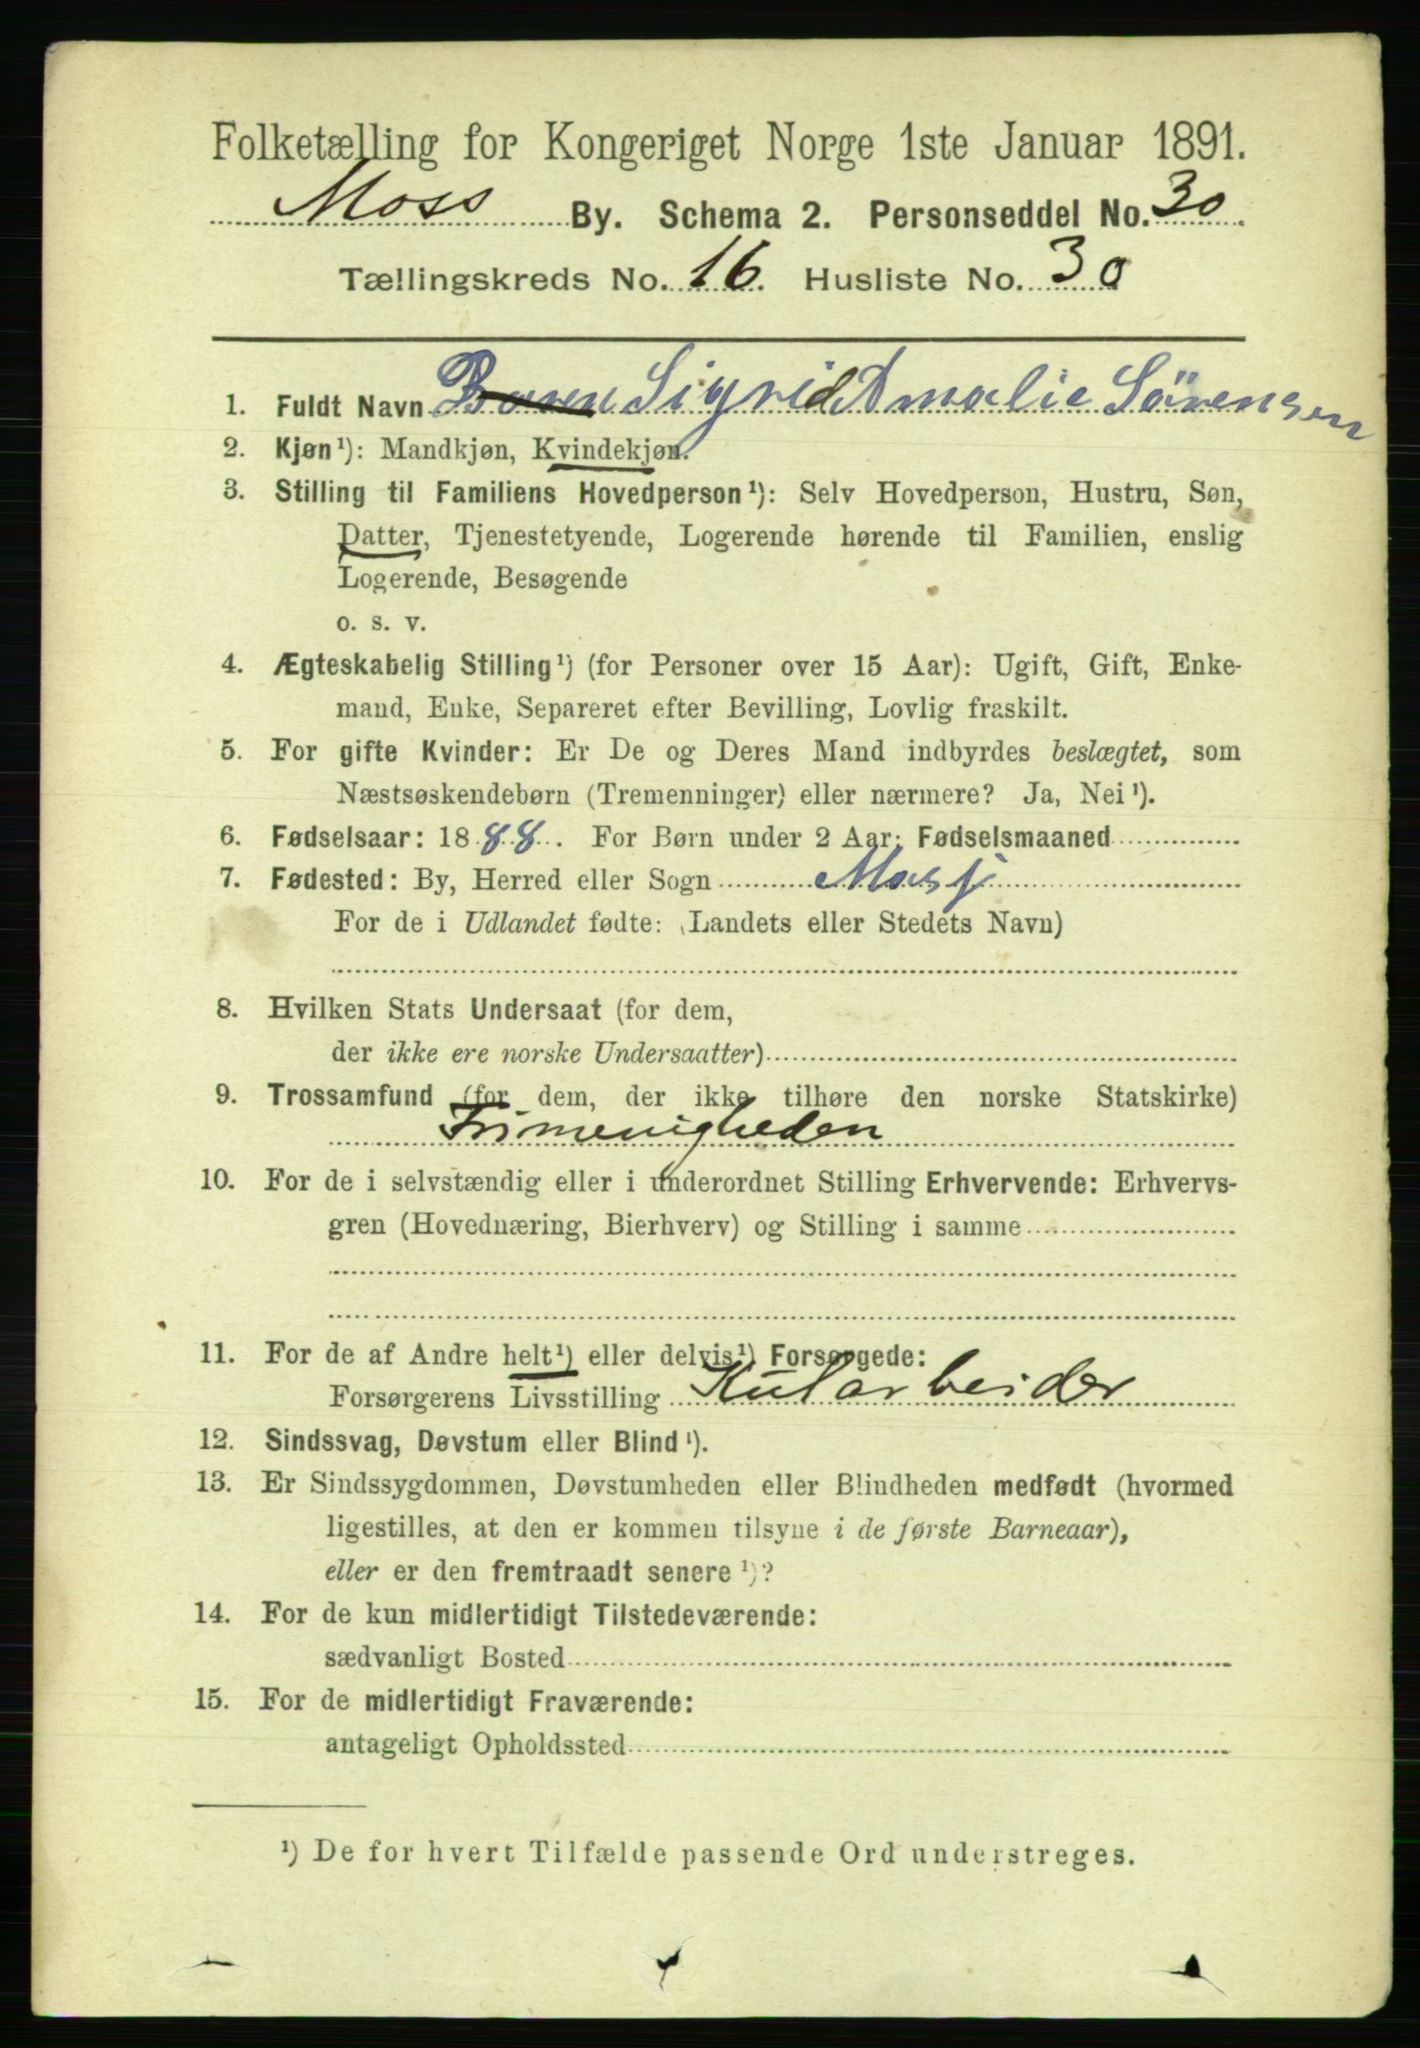 Folketælling for Kongeriget Norge 1ste Januar 1891.
Moss By. Schema 2. Personseddel No. 30.
Tællingskreds No. 16. Husliste No. 30
1. Fuldt Navn Sigrid Amalie Sörensen
2. Kjøn¹): Mandkjøn, Kvindekjøn.
3. Stilling til Familiens Hovedperson¹): Selv Hovedperson, Hustru, Søn,
Datter, Tjenestetyende, Logerende hørende til Familien, enslig
Logerende, Besøgende
o. s. v.
4. Ægteskabelig Stilling¹) (for Personer over 15 Aar): Ugift, Gift, Enke-
mand, Enke, Separeret efter Bevilling, Lovlig fraskilt.
5. For gifte Kvinder: Er De og Deres Mand indbyrdes beslægtet, som
Næstsøskendebørn (Tremenninger) eller nærmere? Ja, Nei¹).
6. Fødselsaar: 1888. For Børn under 2 Aar: Fødselsmaaned
7. Fødested: By, Herred eller Sogn Moss
For de i Udlandet fødte: (Landets eller Stedets Navn)
8. Hvilken Stats Undersaat (for dem,
der ikke ere norske Undersaatter)
9. Trossamfund (for dem, der ikke tilhøre den norske Statskirke)
Frimenigheden
10. For de i selvstændig eller i underordnet Stilling Erhvervende: Erhvervs-
gren (Hovednæring, Bierhverv) og Stilling i samme
11. For de af Andre helt¹) eller delvis¹) Forsørgede:
Forsørgerens Livsstilling Kularbeider
12. Sindssvag, Døvstum eller Blind¹).
13. Er Sindssygdommen, Døvstumheden eller Blindheden medfødt (hvormed
ligestilles, at den er kommen tilsyne i de første Barneaar),
eller er den fremtraadt senere¹)?
14. For de kun midlertidigt Tilstedeværende:
sædvanligt Bosted
15. For de midlertidigt Fraværende:
antageligt Opholdssted
¹) De for hvert Tilfælde passende Ord understreges.